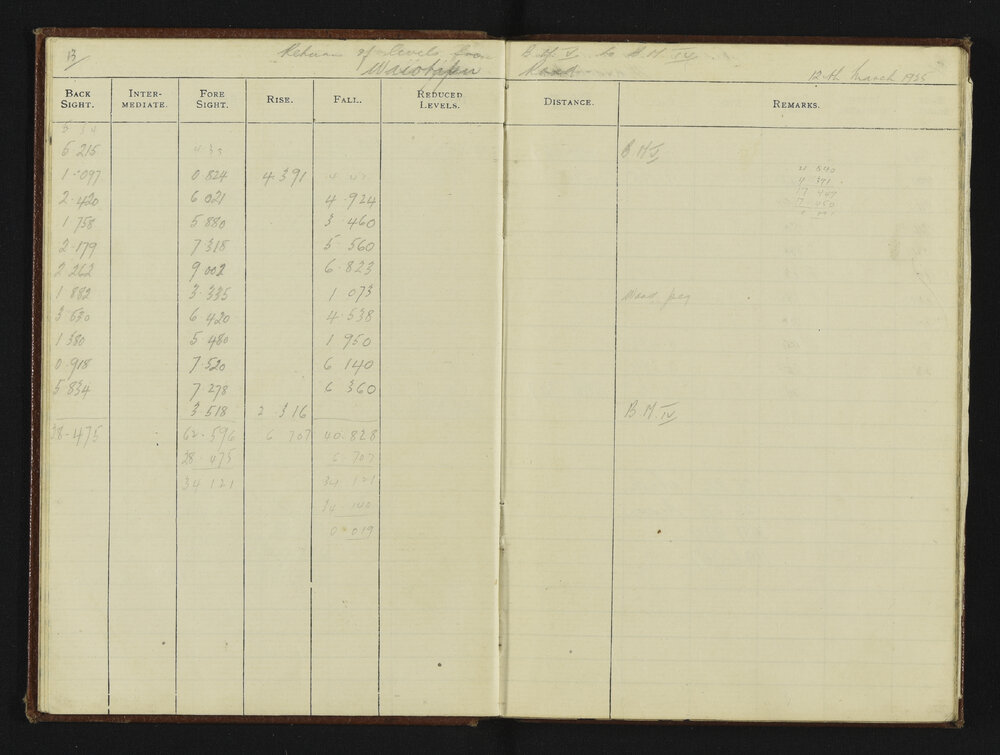 B/ Return of levels from B.M. V to B.M. IV
Waiotapu Road 12th March 1935
BACK SIGHT. INTERMEDIATE. FORE SIGHT. RISE. FALL. REDUCED LEVELS. DISTANCE. REMARKS.
5·215 B.M. V
1·097 0 824 4·391
2·420 6 021 4·924
1 758 5 880 3·460
2·179 7 318 5·560
2 262 9 002 6·823
1 882 3·335 1 073 Wood peg
3 530 6 420 4·538
1 380 5 480 1 950
0·918 7·520 6 140
5·834 7 278 6 360
3 518 2 316 B.M. IV
28·475 62·596 6 707 40·828
28·475 6·707
34 121 34 121
34 140
0·019